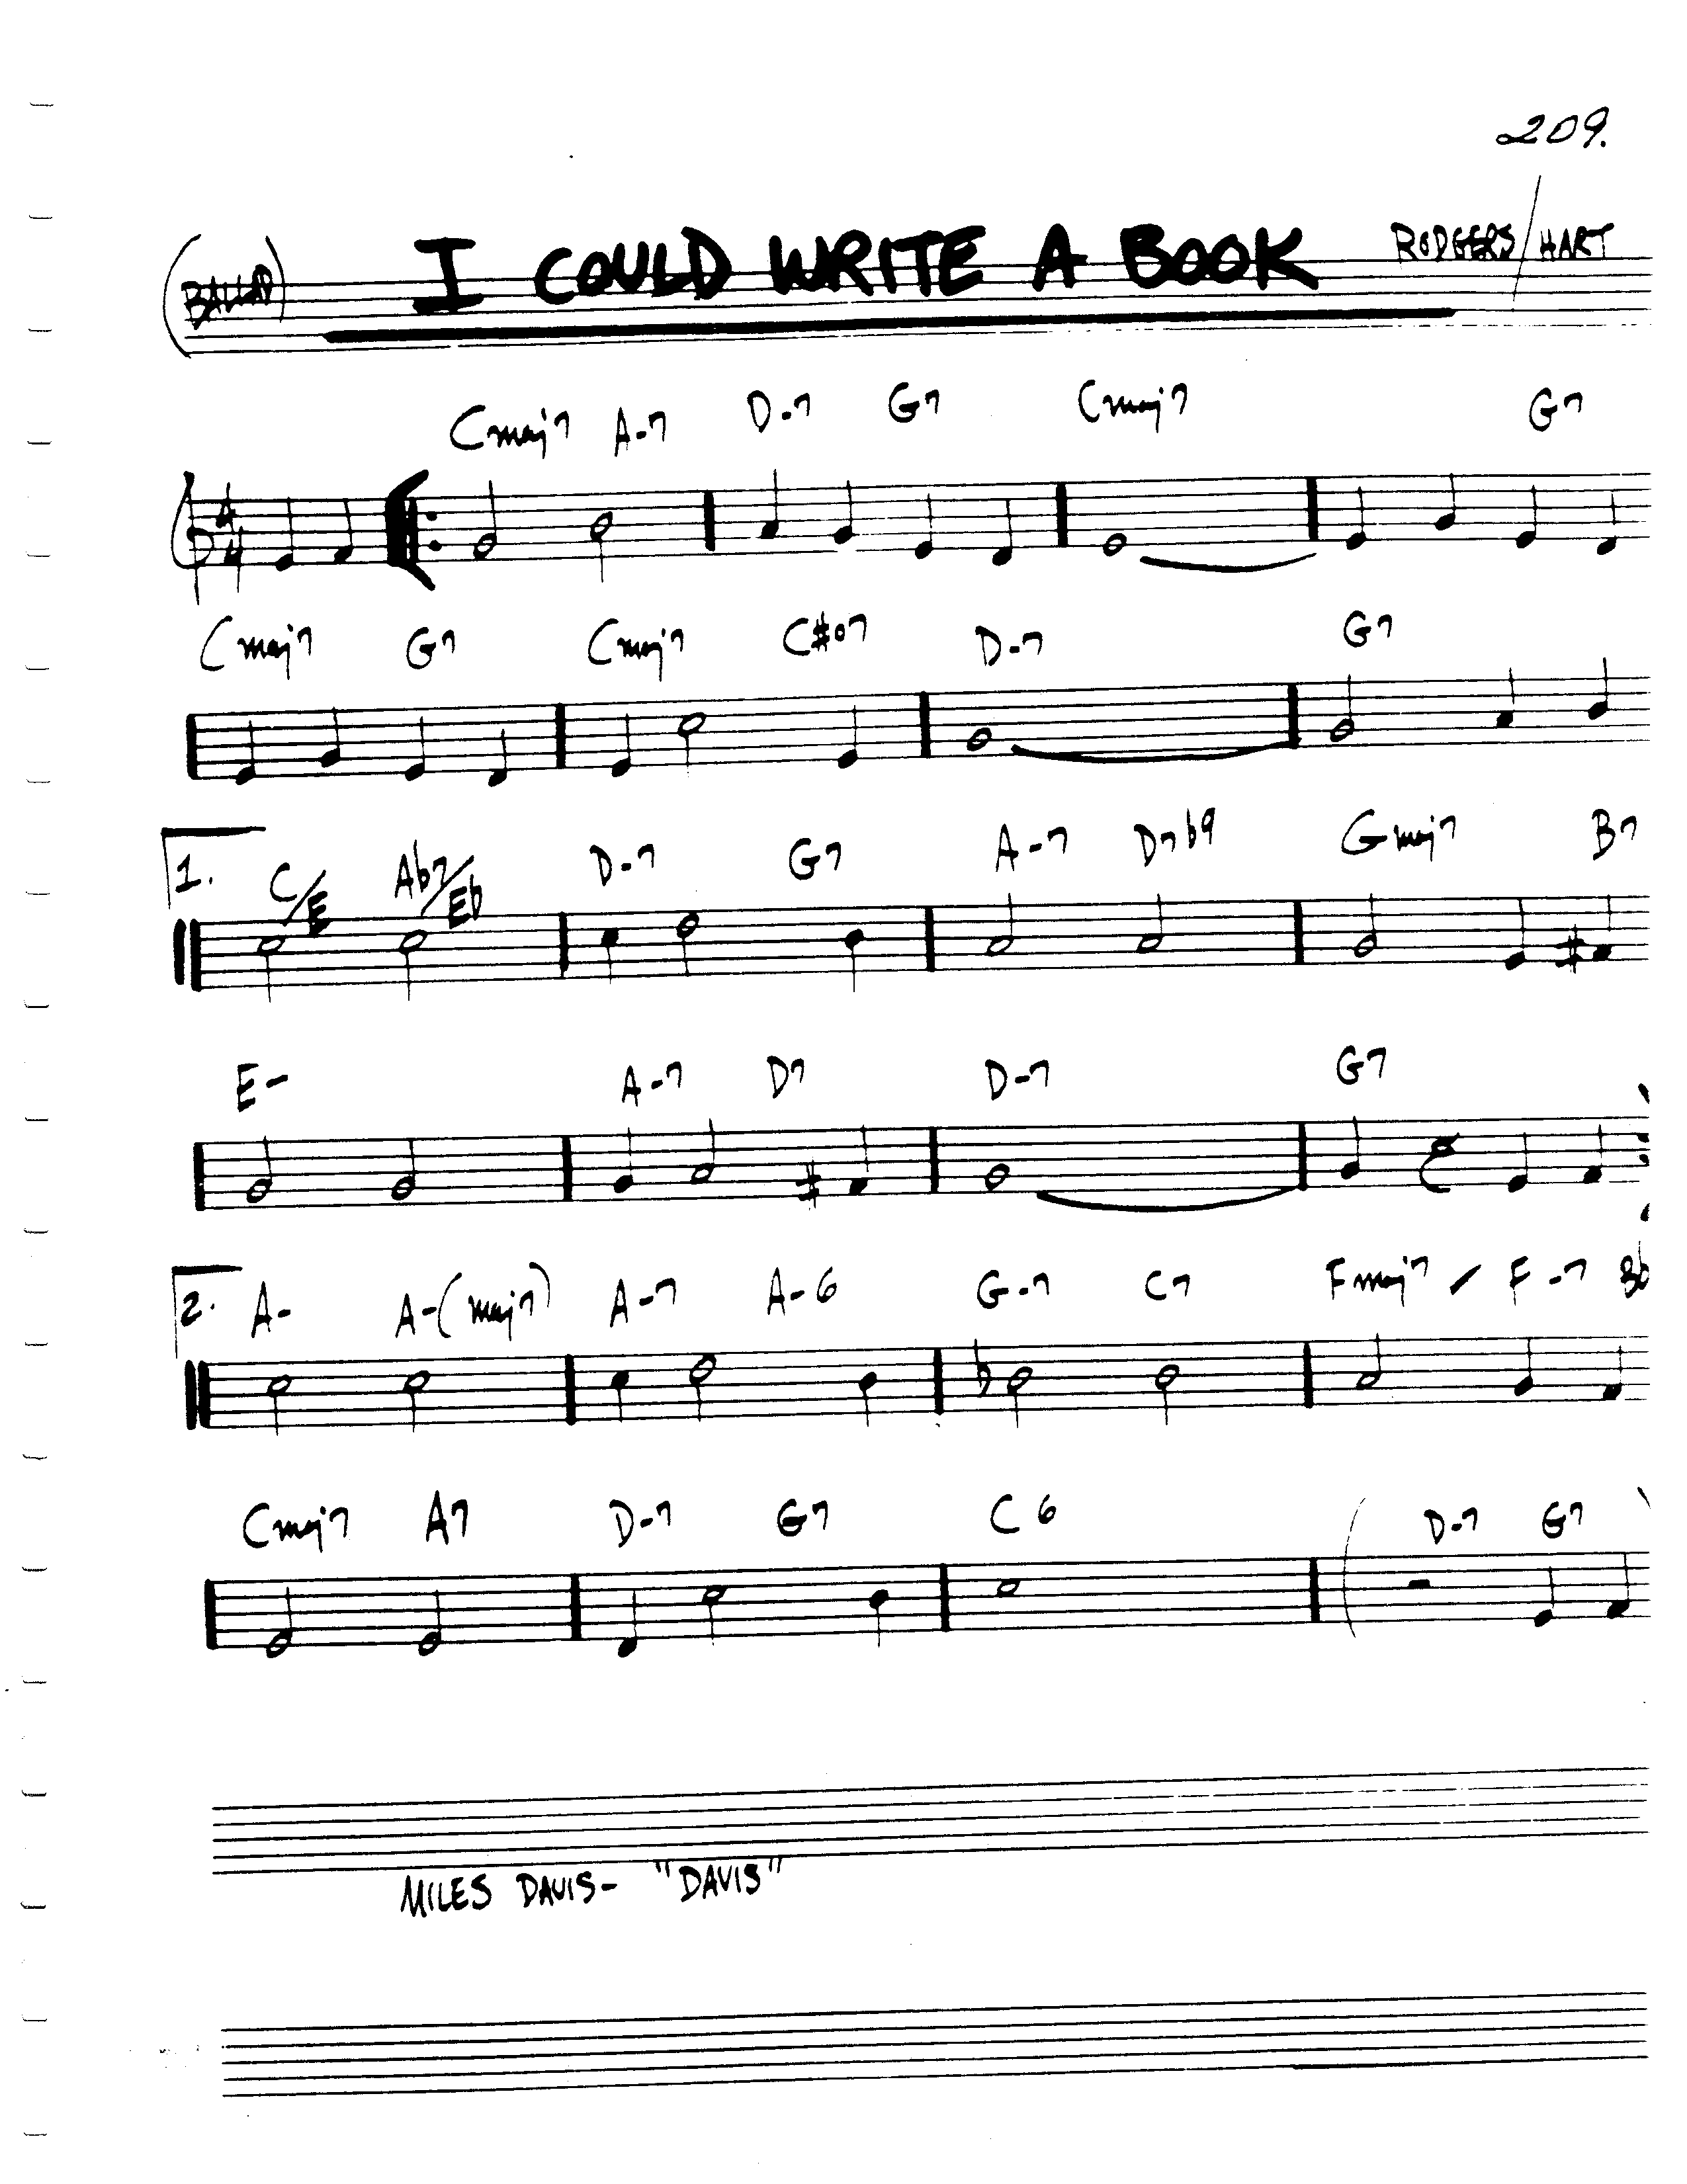 209.
(BALLAD) I COULD WRITE A BOOK RODGERS/HART
Cmaj7 A-7 D-7 G7 Cmaj7 G7
4 4
Cmaj7 G7 Cmaj7 C#o7 D-7 G7
1. C/E Ab7/Eb D-7 G7 A-7 D7b9 Gmaj7 B7
E- A-7 D7 D-7 G7
2. A- A-(maj7) A-7 A-6 G-7 C7 Fmaj7 / F-7 Bb
Cmaj7 A7 D-7 G7 C6 ( D-7 G7 )
MILES DAVIS- "DAVIS"